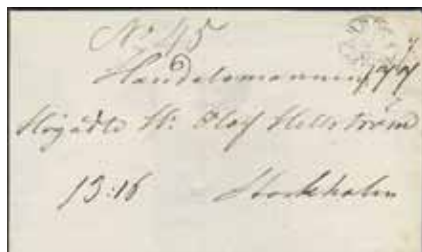 No 45
Handelsmannen
Högädle H: Olof Hellström
13:16 Stockholm